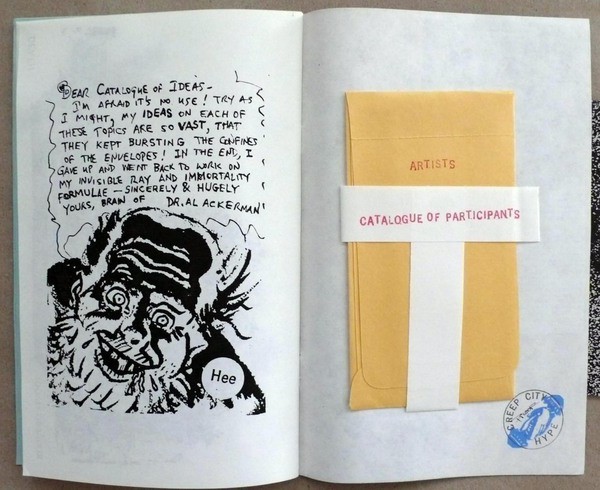 DEAR CATALOGUE OF IDEAS -
I'M AFRAID IT'S NO USE! TRY AS
I MIGHT, MY IDEAS ON EACH OF
THESE TOPICS ARE SO VAST, THAT
THEY KEPT BURSTING THE CONFINES
OF THE ENVELOPES! IN THE END, I
GAVE UP AND WENT BACK TO WORK ON
MY INVISIBLE RAY AND IMMORTALITY
FORMULAE - SINCERELY & HUGELY
YOURS, BRAIN OF DR. AL ACKERMAN
Hee
ARTISTS
CATALOGUE OF PARTICIPANTS
CREEP CITY
HYPE